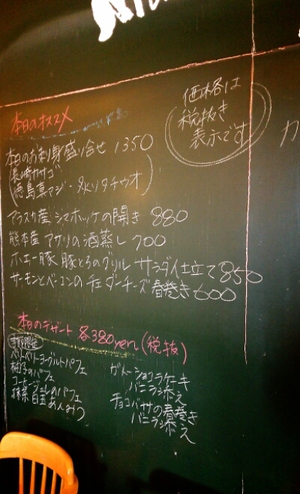 価格は
税抜き
表示です
本日のオススメ
本日のお刺身盛り合せ 1350
長崎カサゴ
徳島草アジ・炙りタチウオ
アラスカ産シマホッケの開き 880
熊本産アサリの酒蒸し 700
ホエー豚 豚とろのグリル サラダ仕立て 850
サーモンとベーコンのチェダーチーズ春巻き 600
本日のデザート 各380yen (税抜)
ヨーグルトパフェ
柚子のパフェ
コーヒージェレのパフェ
抹茶白玉あんみつ
ガトーショコラケーキ
バニラ添え
チョコバナナの春巻き
バニラ添え
カ